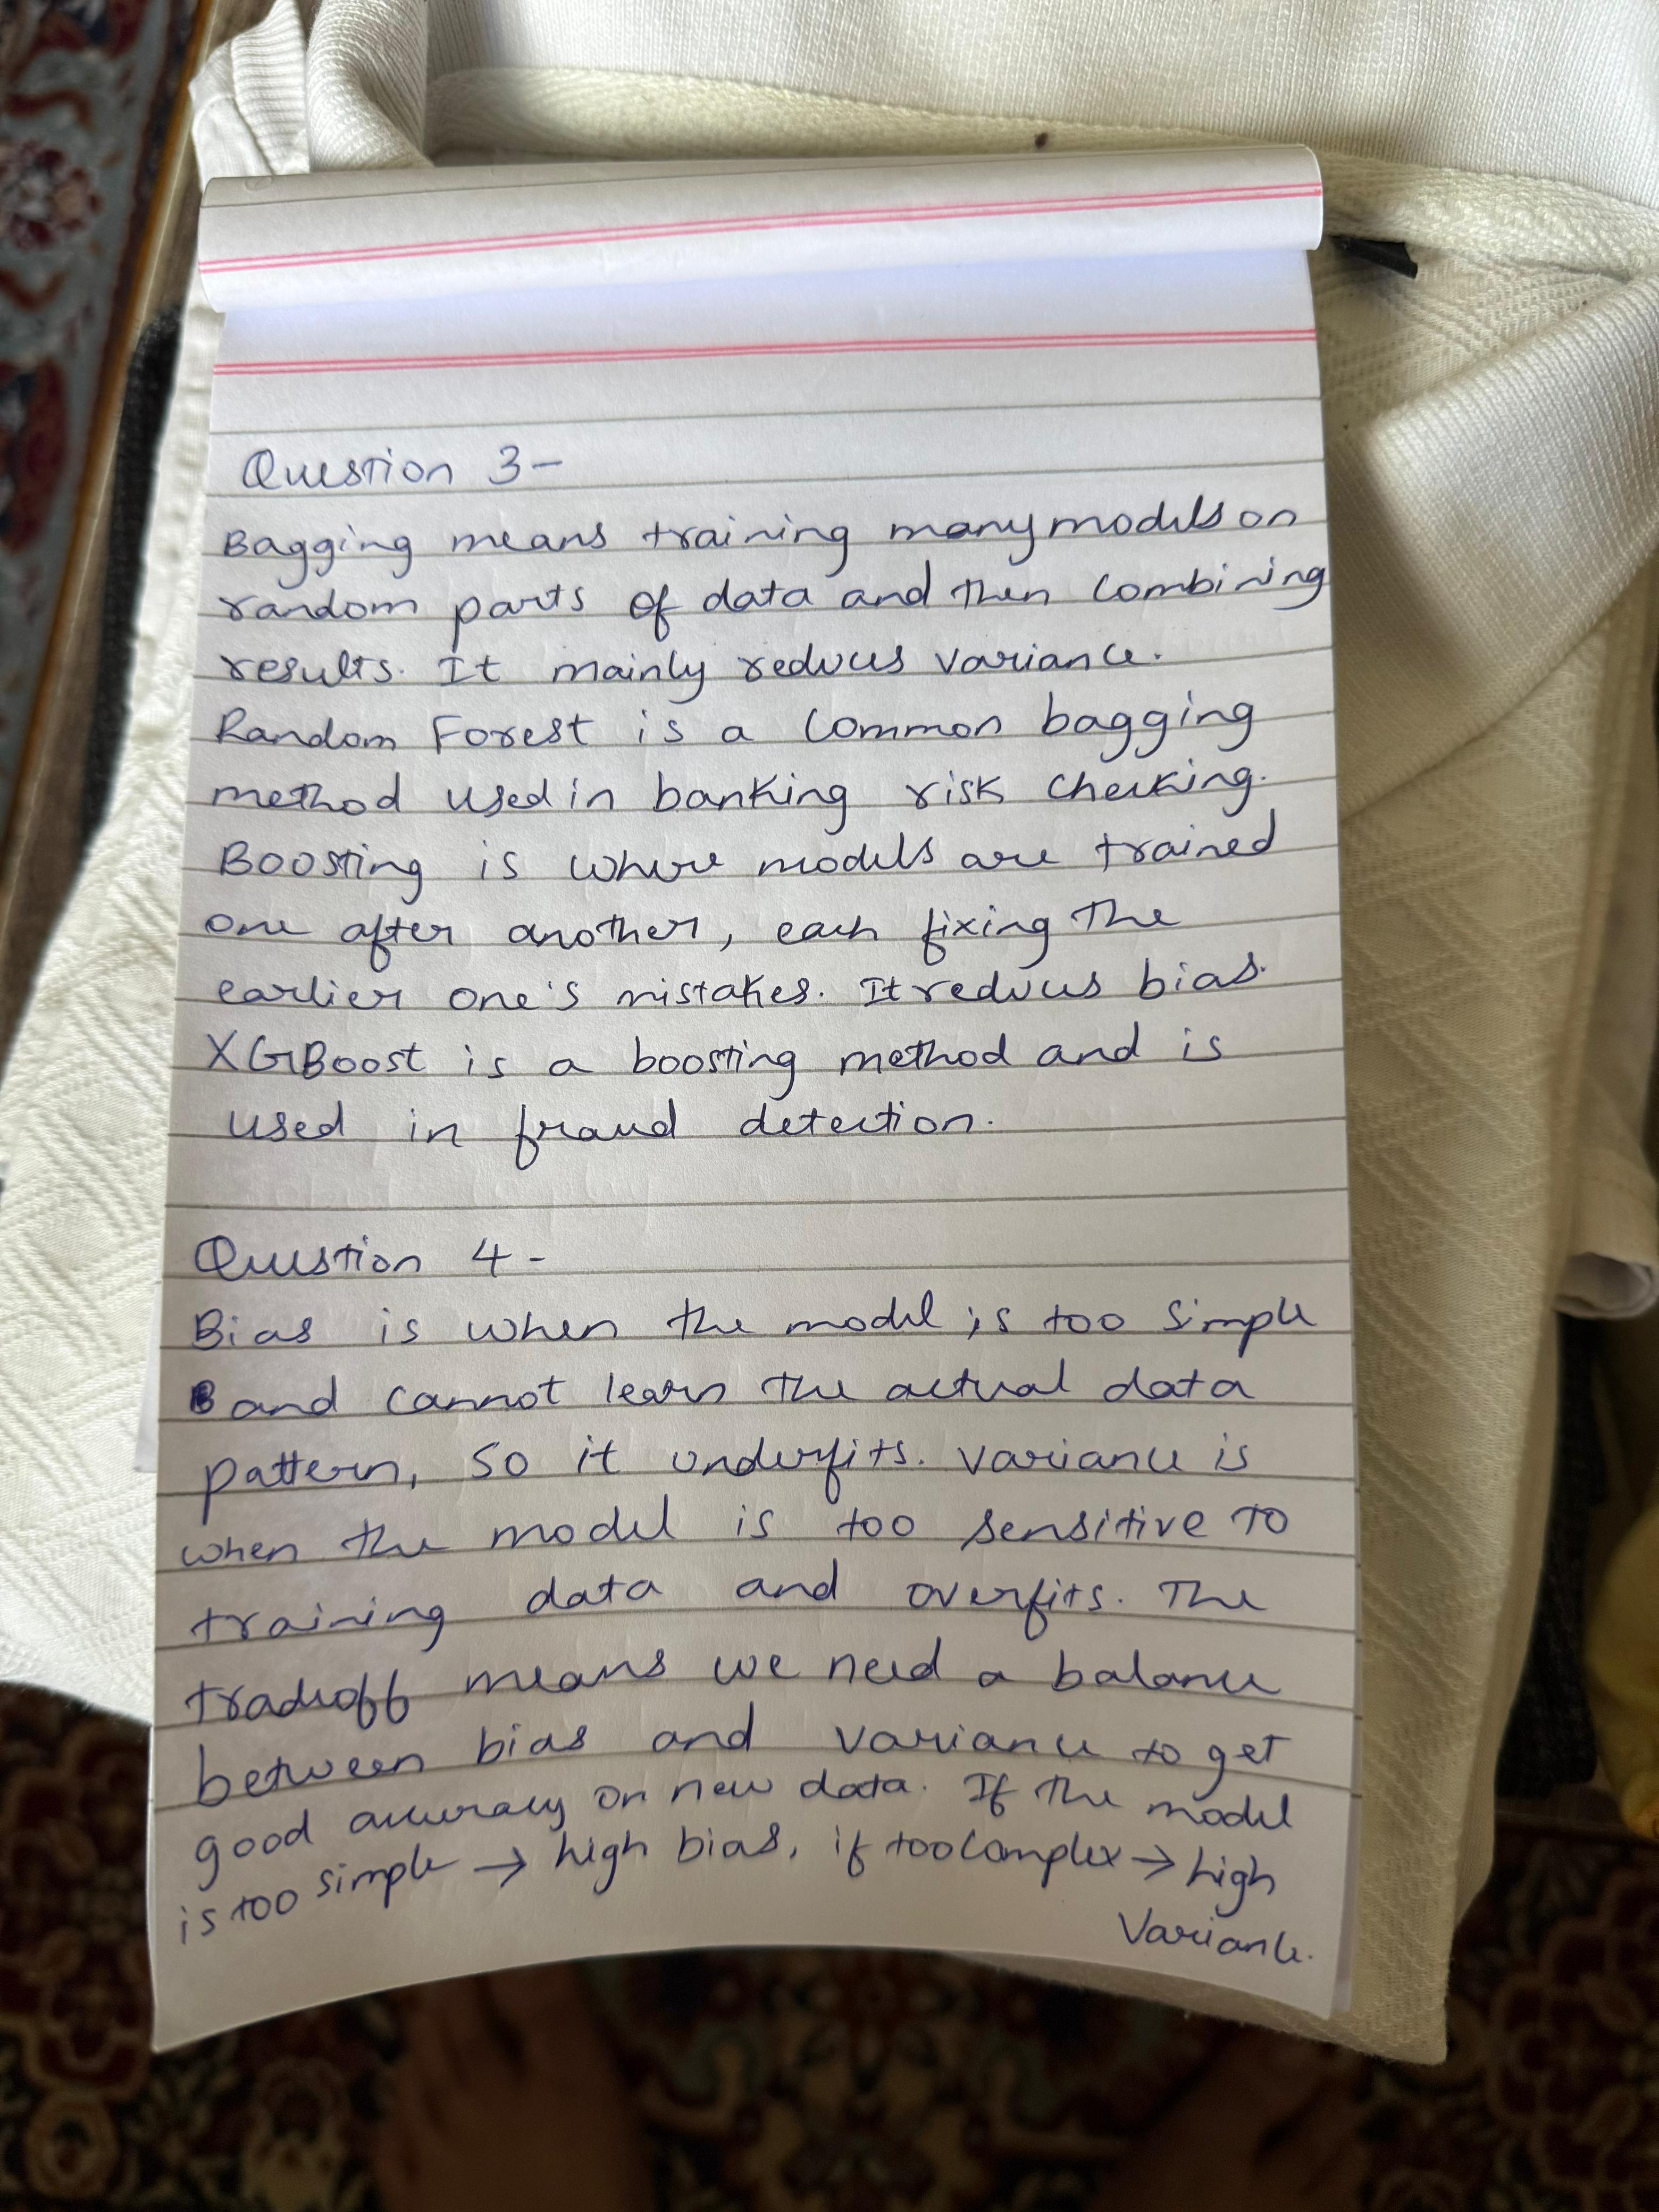 Question 3-
Bagging means training many models on
random parts of data and then combining
results. It mainly reduces variance.
Random Forest is a common bagging
method used in banking risk checking.
Boosting is where models are trained
one after another, each fixing the
earlier one's mistakes. It reduces bias.
XGBoost is a boosting method and is
used in fraud detection.
Question 4-
Bias is when the model is too simple
and cannot learn the actual data
pattern, so it underfits. Variance is
when the model is too sensitive to
training data and overfits. The
tradeoff means we need a balance
between bias and variance to get
good accuracy on new data. If the model
is too simple → high bias, if too complex → high
Variance.